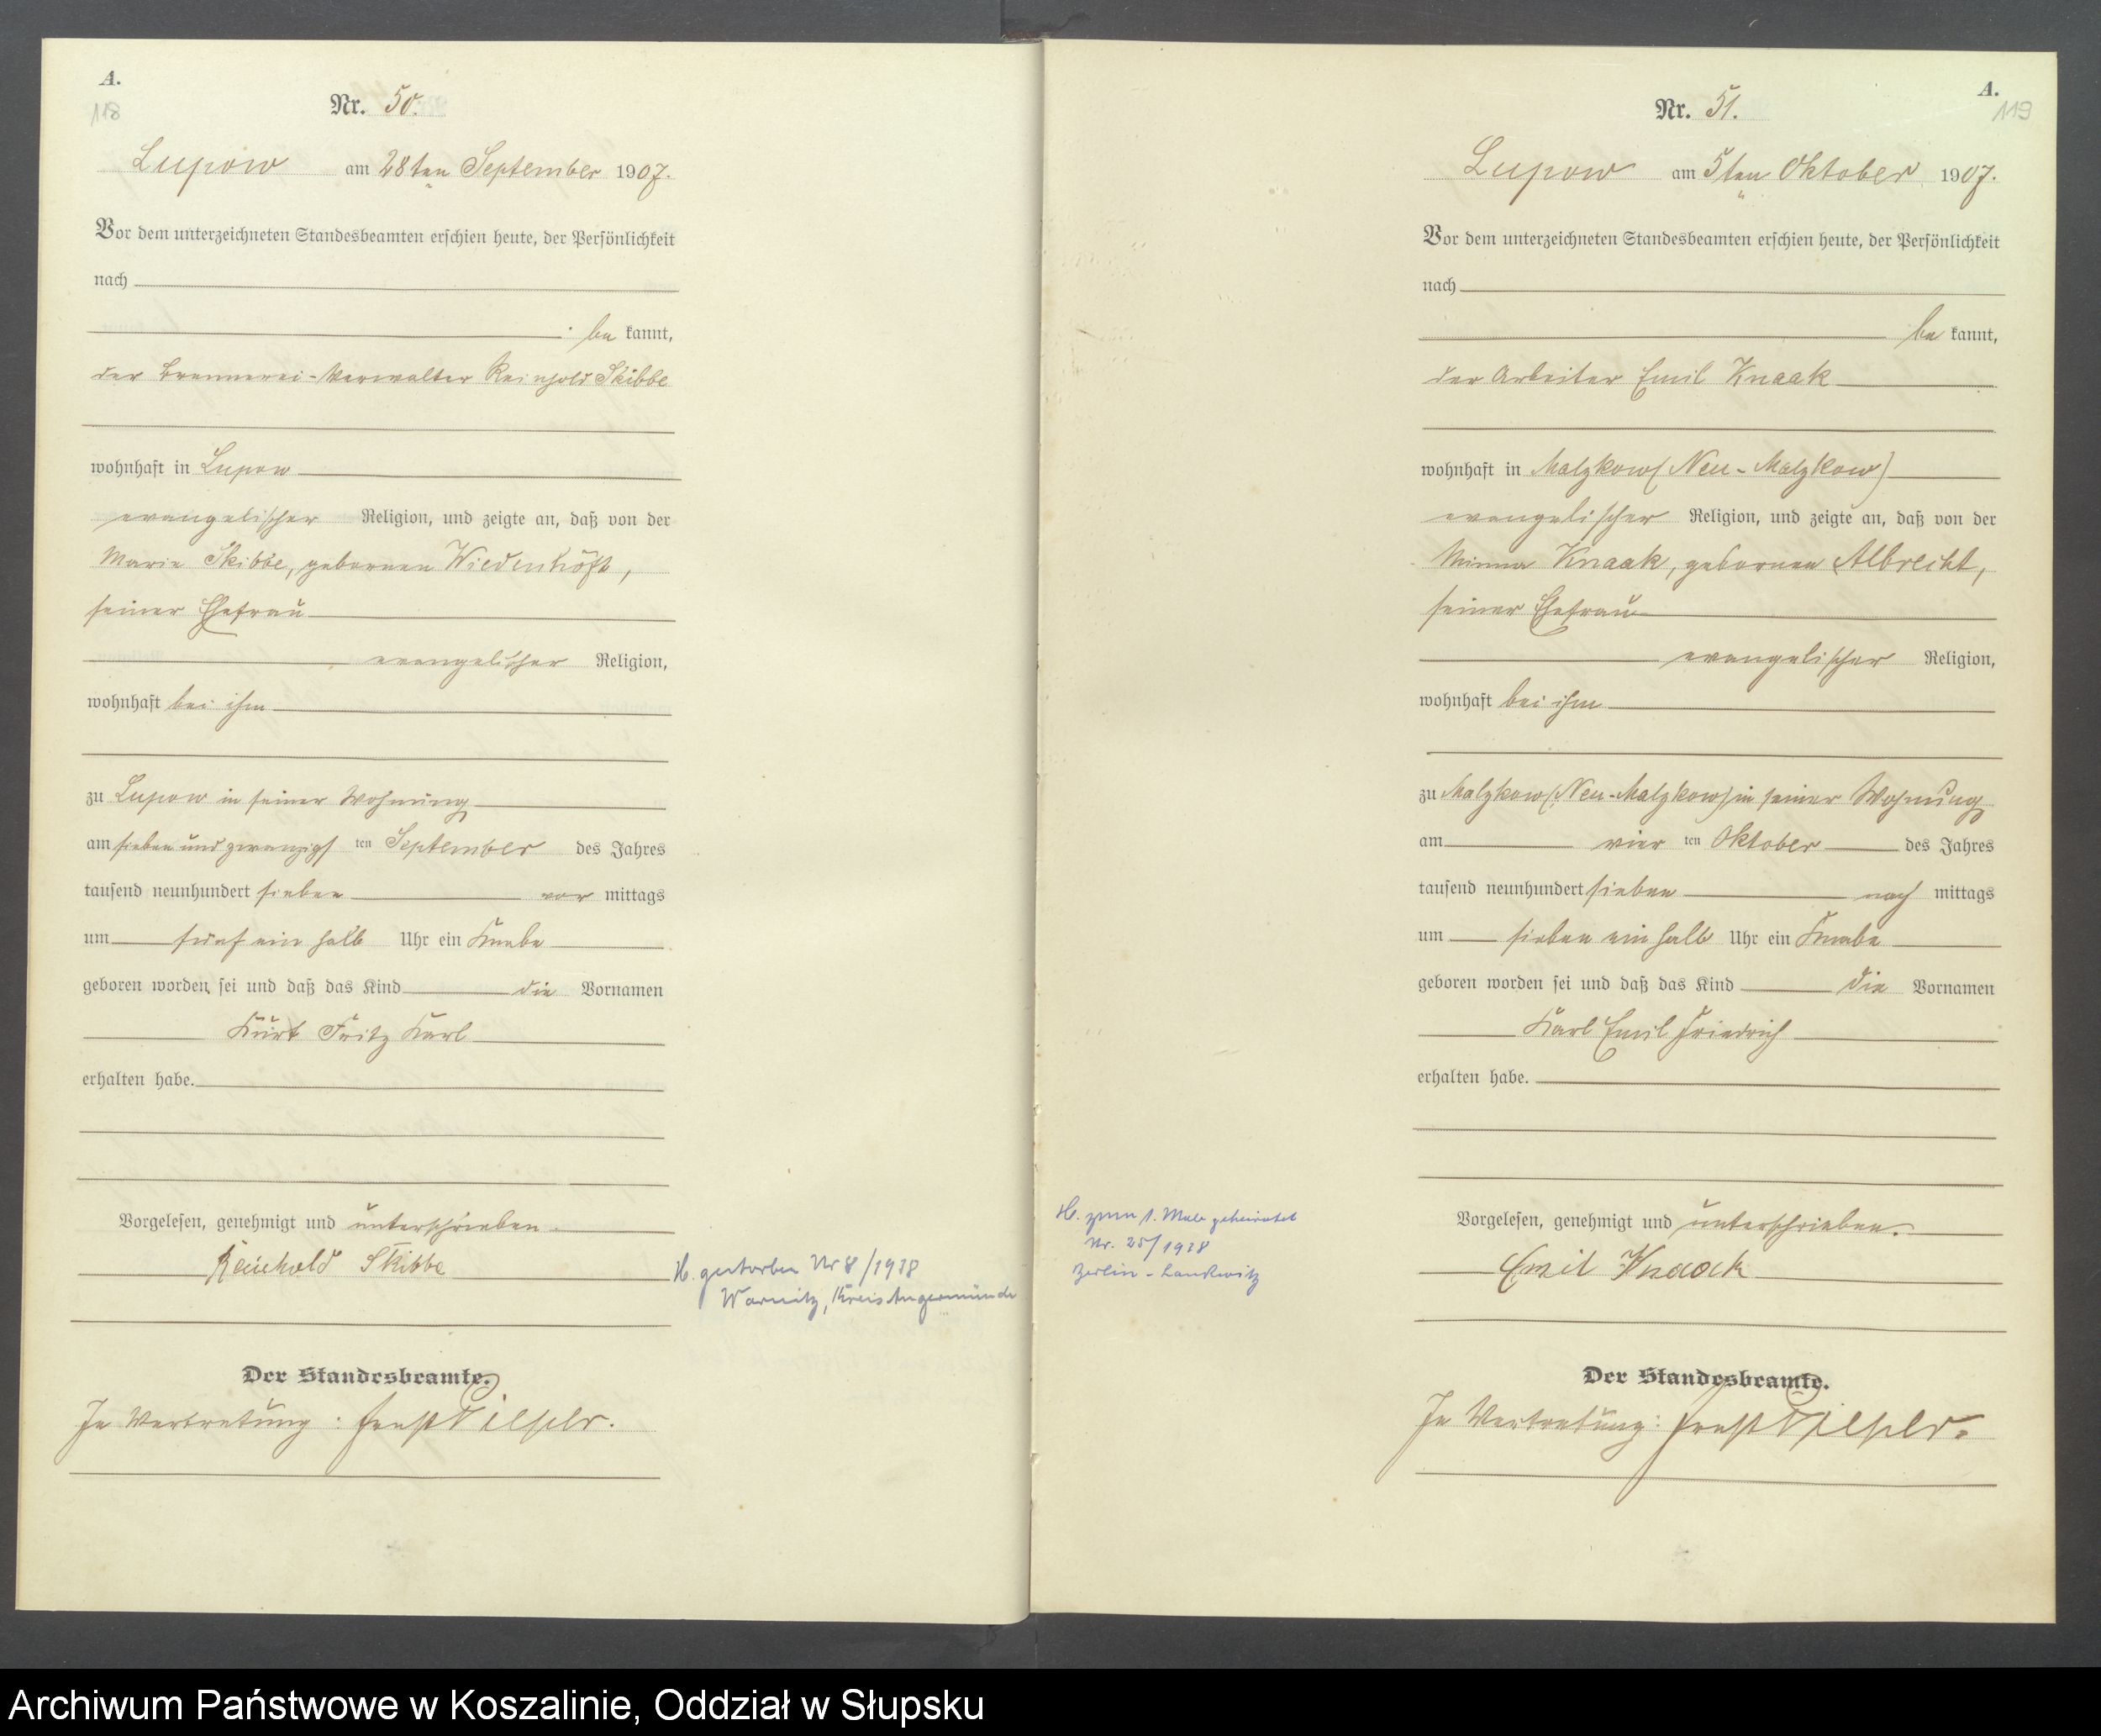 A.
118
Nr. 50.
Lupow am 28ten September 1907.
Vor dem unterzeichneten Standesbeamten erschien heute, der Persönlichkeit
nach
be kannt,
der Brennerei-Verwalter Reinhold Skibbe
wohnhaft in Lupow
evangelischer Religion, und zeigte an, daß von der
Marie Skibbe, geborenen Wiedenhöft,
seiner Ehefrau
evangelischer Religion,
wohnhaft bei ihm
zu Lupow in seiner Wohnung
am sieben und zwanzigs ten September des Jahres
tausend neunhundert sieben vor mittags
um fünf ein halb Uhr ein Knabe
geboren worden sei und daß das Kind die Vornamen
Kurt Fritz Karl
erhalten habe.
Vorgelesen, genehmigt und unterschrieben.
Reinhold Skibbe
H. gestorben Nr 8/1938
Warnitz, Kreis Angermünde
Der Standesbeamte.
In Vertretung: Ernst
A.
119
Nr. 51.
Lupow am 5ten Oktober 1907.
Vor dem unterzeichneten Standesbeamten erschien heute, der Persönlichkeit
nach
be kannt,
der Arbeiter Emil Knaak
wohnhaft in Malzkow (Neu-Malzkow)
evangelischer Religion, und zeigte an, daß von der
Minna Knaak, geborenen Albrecht,
seiner Ehefrau
evangelischer Religion,
wohnhaft bei ihm
zu Malzkow (Neu-Malzkow) in seiner Wohnung
am vier ten Oktober des Jahres
tausend neunhundert sieben nach mittags
um sieben ein halb Uhr ein Knabe
geboren worden sei und daß das Kind die Vornamen
Karl Emil Friedrich
erhalten habe.
Vorgelesen, genehmigt und unterschrieben.
Emil Knaack
H. zum 1. Male geheiratet
Nr. 25/1938
Berlin-Lankwitz
Der Standesbeamte.
In Vertretung: Ernst
Archiwum Państwowe w Koszalinie, Oddział w Słupsku